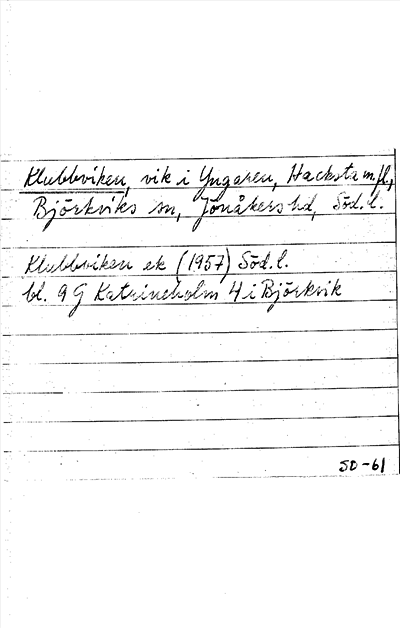 Klubbviken, vik i Yngaren, Hacksta m.fl.,
Björkviks sn, Jönåkers hd, Söd.l.
Klubbviken ek (1957) Söd.l.
bl. 9G Katrineholm 4 i Björkvik
SD-61